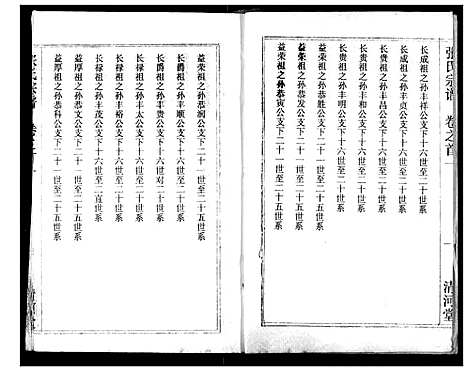 张氏宗谱 卷之首 一 清河堂
长成祖之孙丰祥公支下十六世至二十世系
长成祖之孙丰贞公支下十六世至二十世系
长贵祖之孙丰昌公支下十六世至二十世系
长贵祖之孙丰和公支下十六世至二十世系
长贵祖之孙丰明公支下十六世至二十世系
益荣祖之孙恭胜公支下二十一世至二十五世系
益荣祖之孙恭发公支下二十一世至二十五世系
益荣祖之孙恭寅公支下二十一世至二十五世系
益荣祖之孙恭润公支下二十一世至二十五世系
长爵祖之孙丰贵公支下十六世对二十世系
长爵祖之孙丰顺公支下十六世至二十世系
长禄祖之孙丰太公支下十六世至二十世系
长禄祖之孙丰裕公支下十六世至二十世系
长禄祖之孙丰茂公支下十六世至二直世系
益厚祖之孙恭文公支下二十一世至二十五世系
益厚祖之孙恭科公支下二十一世至二十五世系